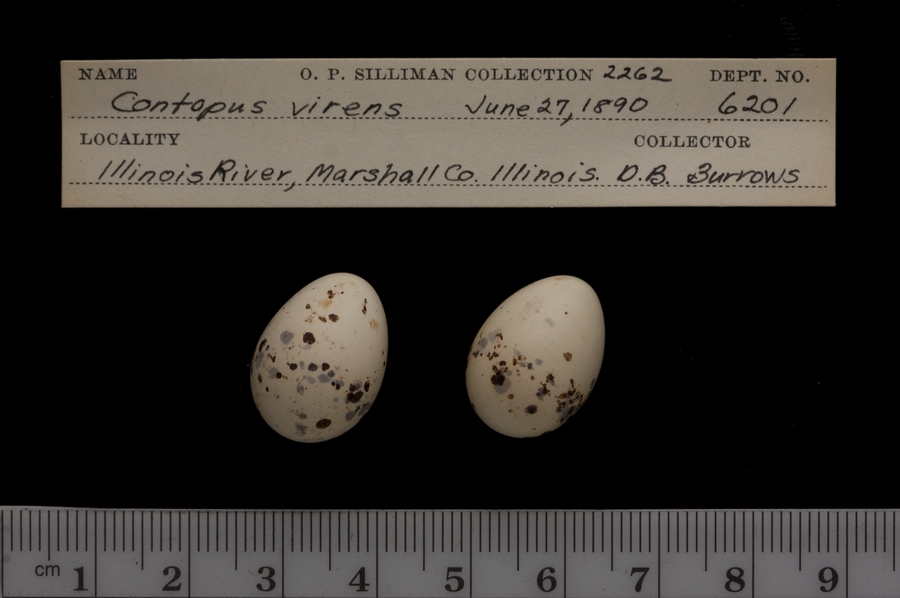 NAME O. P. SILLIMAN COLLECTION 2262 DEPT. NO.
Contopus virens June 27, 1890 6201
LOCALITY COLLECTOR
Illinois River, Marshall Co. Illinois. D.B. Burrows
cm 1 2 3 4 5 6 7 8 9